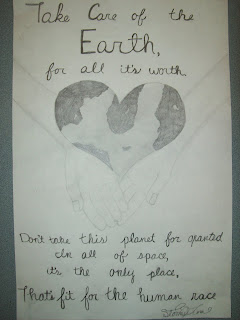 Take Care of the
Earth,
for all it's worth.
Don't take this planet for granted
In all of space,
it's the only place,
That's fit for the human race